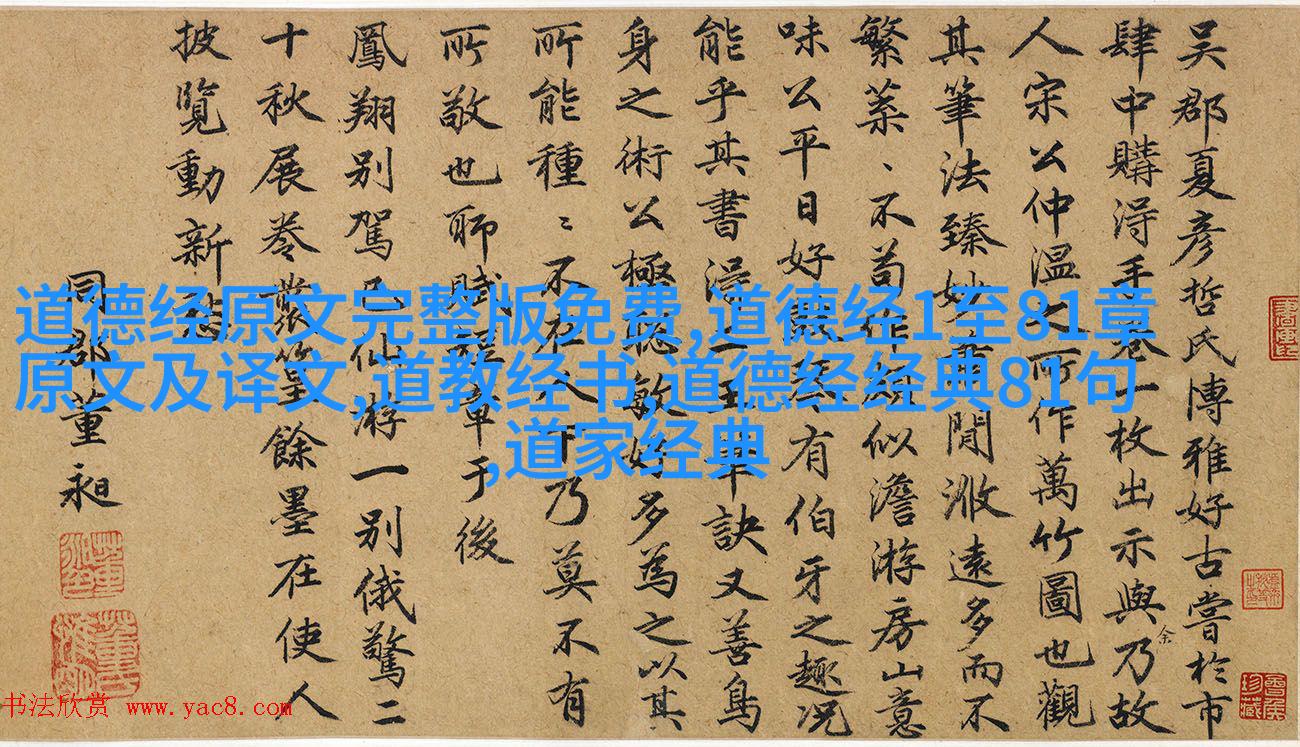 吳郡夏彥哲氏博雅好古嘗於市
肆中購得手卷一枚出示與余乃故
人宋公仲溫之所作萬竹圖也觀
其筆法臻妙閒遠多而不
繁不苟作似澹游房山意
味公平日好有伯牙之趣况
能乎其書得二王筆訣又善鳥
身之術公極聰敏好多為之以其
所能種〻不在人下乃莫不有
所敬也聊賦短章于後
鳳翔別駕已仙游一別俄驚二
十秋展卷餘墨在使人
披覽動新
同郡董昶
道德经原文完整版免费,道德经1至81章
原文及译文,道教经书,道德经经典81句
,道家经典
书法欣赏 www.yac8.com